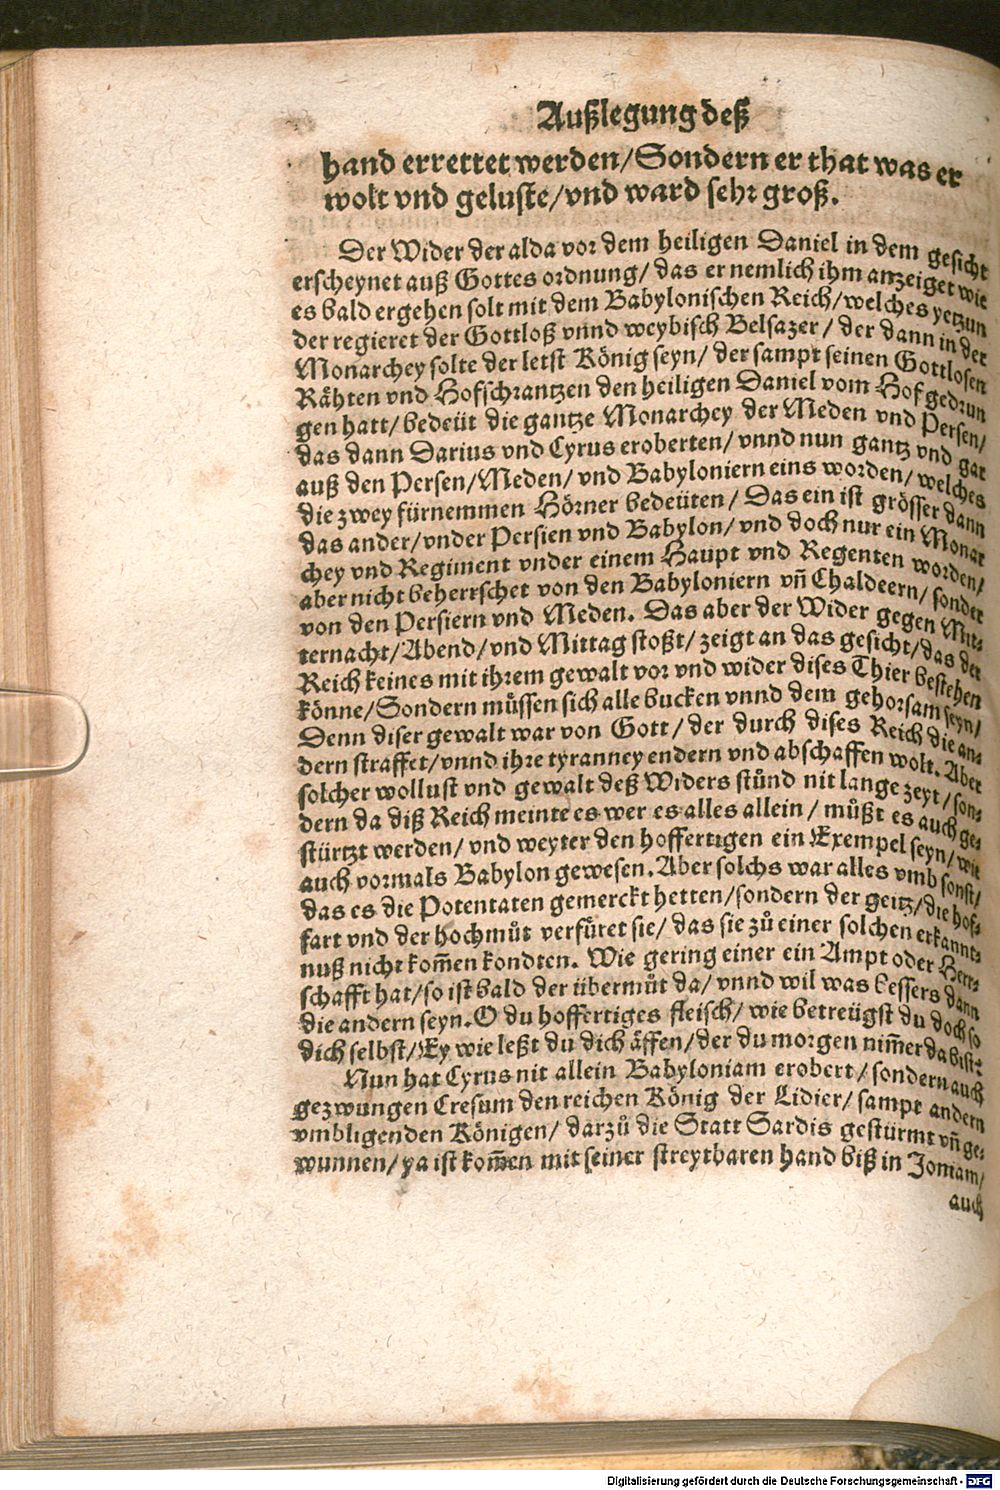 Außlegung deß
hand errettet werden/Sondern er that was er
wolt vnd geluste/vnd ward sehr groß.
Der Wider der alda vor dem heiligen Daniel in dem gesicht
erscheynet auß Gottes ordnung/ das er nemlich ihm anzeiget wie
es bald ergehen solt mit dem Babylonischen Reich/welches yetzun
der regieret der Gottloß vnnd weybisch Belsazer/ der dann in der
Monarchey solte der letst König seyn/ der sampt seinen Gottlosen
Rähten vnd Hofschrantzen den heiligen Daniel vom Hof gedrun
gen hatt/ bedeüt die gantze Monarchey der Meden vnd Persen/
das dann Darius vnd Cyrus eroberten/ vnnd nun gantz vnd gar
auß den Persen/Meden/ vnd Babyloniern eins worden/ welches
die zwey fürnemmen Hörner bedeüten/ Das ein ist grösser dann
das ander/vnder Persien vnd Babylon/ vnd doch nur ein Monar
chey vnd Regiment vnder einem Haupt vnd Regenten worden/
aber nicht beherrschet von den Babyloniern vñ Chaldeern/ sonder
von den Persiern vnd Meden. Das aber der Wider gegen Mit-
ternacht/Abend/vnd Mittag stoßt/ zeigt an das gesicht/das der
Reich keines mit ihrem gewalt vor vnd wider dises Thier bestehen
könne/Sondern müssen sich alle bucken vnnd dem gehorsam seyn/
Denn diser gewalt war von Gott/ der durch dises Reich die an-
dern straffet/vnnd ihre tyranney endern vnd abschaffen wolt. Aber
solcher wollust vnd gewalt deß Widers stůnd nit lange zeyt/son-
dern da diß Reich meinte es wer es alles allein/ müßt es auch ge-
stürtzt werden/ vnd weyter den hoffertigen ein Exempel seyn/ wie
auch vormals Babylon gewesen. Aber solchs war alles vmb sonst/
das es die Potentaten gemerckt hetten/sondern der geitz/die hof-
fart vnd der hochmůt verfüret sie/ das sie zů einer solchen erkannt-
nuß nicht kom̃en kondten. Wie gering einer ein Ampt oder Herr-
schafft hat/so ist bald der übermůt da/ vnnd wil was bessers dann
die andern seyn. O du hoffertiges fleisch/ wie betreügst du doch so
dich selbst/Ey wie leßt du dich äffen/der du morgen nim̃er da bist:
Nun hat Cyrus nit allein Babyloniam erobert/ sondern auch
gezwungen Cresum den reichen König der Lidier/ sampt andern
vmbligenden Königen/ darzů die Statt Sardis gestürmt vñ ge-
wunnen/ ya ist kom̃en mit seiner streytbaren hand biß in Joniam/
auch
Digitalisierung gefördert durch die Deutsche Forschungsgemeinschaft - DFG